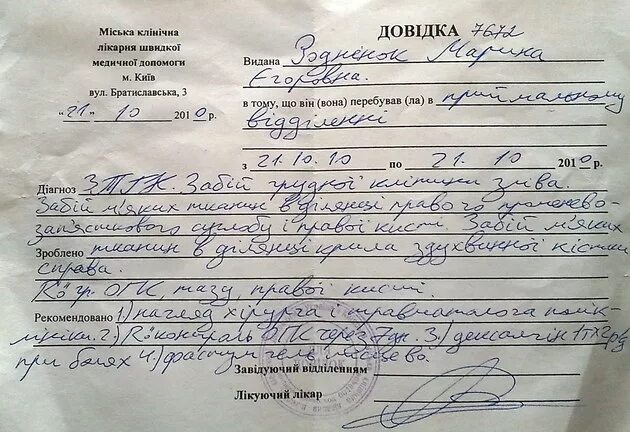 Міська клінічна
лікарня швидкої
медичної допомоги
м. Київ
вул. Братиславська, 3
"21" 10 2010 р.
ДОВІДКА 7672
Видана Родненок Марина
Єгоровна.
в тому, що він (вона) перебував (ла) в приймальному
відділенні
з 21.10.10 по 21. 10 2010 р.
Діагноз ЗТГК. Забій грудної клітини зліва.
Забій м'яких тканин в ділянці правого променево-
зап'ясткового суглобу і правої кисті. Забій м'яких
Зроблено тканин в ділянці крила здухвинної кістки
справа.
Rö гр. ОГК, тазу, правої кисті.
Рекомендовано 1) нагляд хірурга і травматолога полік-
лініки. 2) Rö контроль ОГК через 7 дн. 3) дексалгін 1т х 2 р/д
при болях 4) фастум гель місцево.
Завідуючий відділенням
Лікуючий лікар